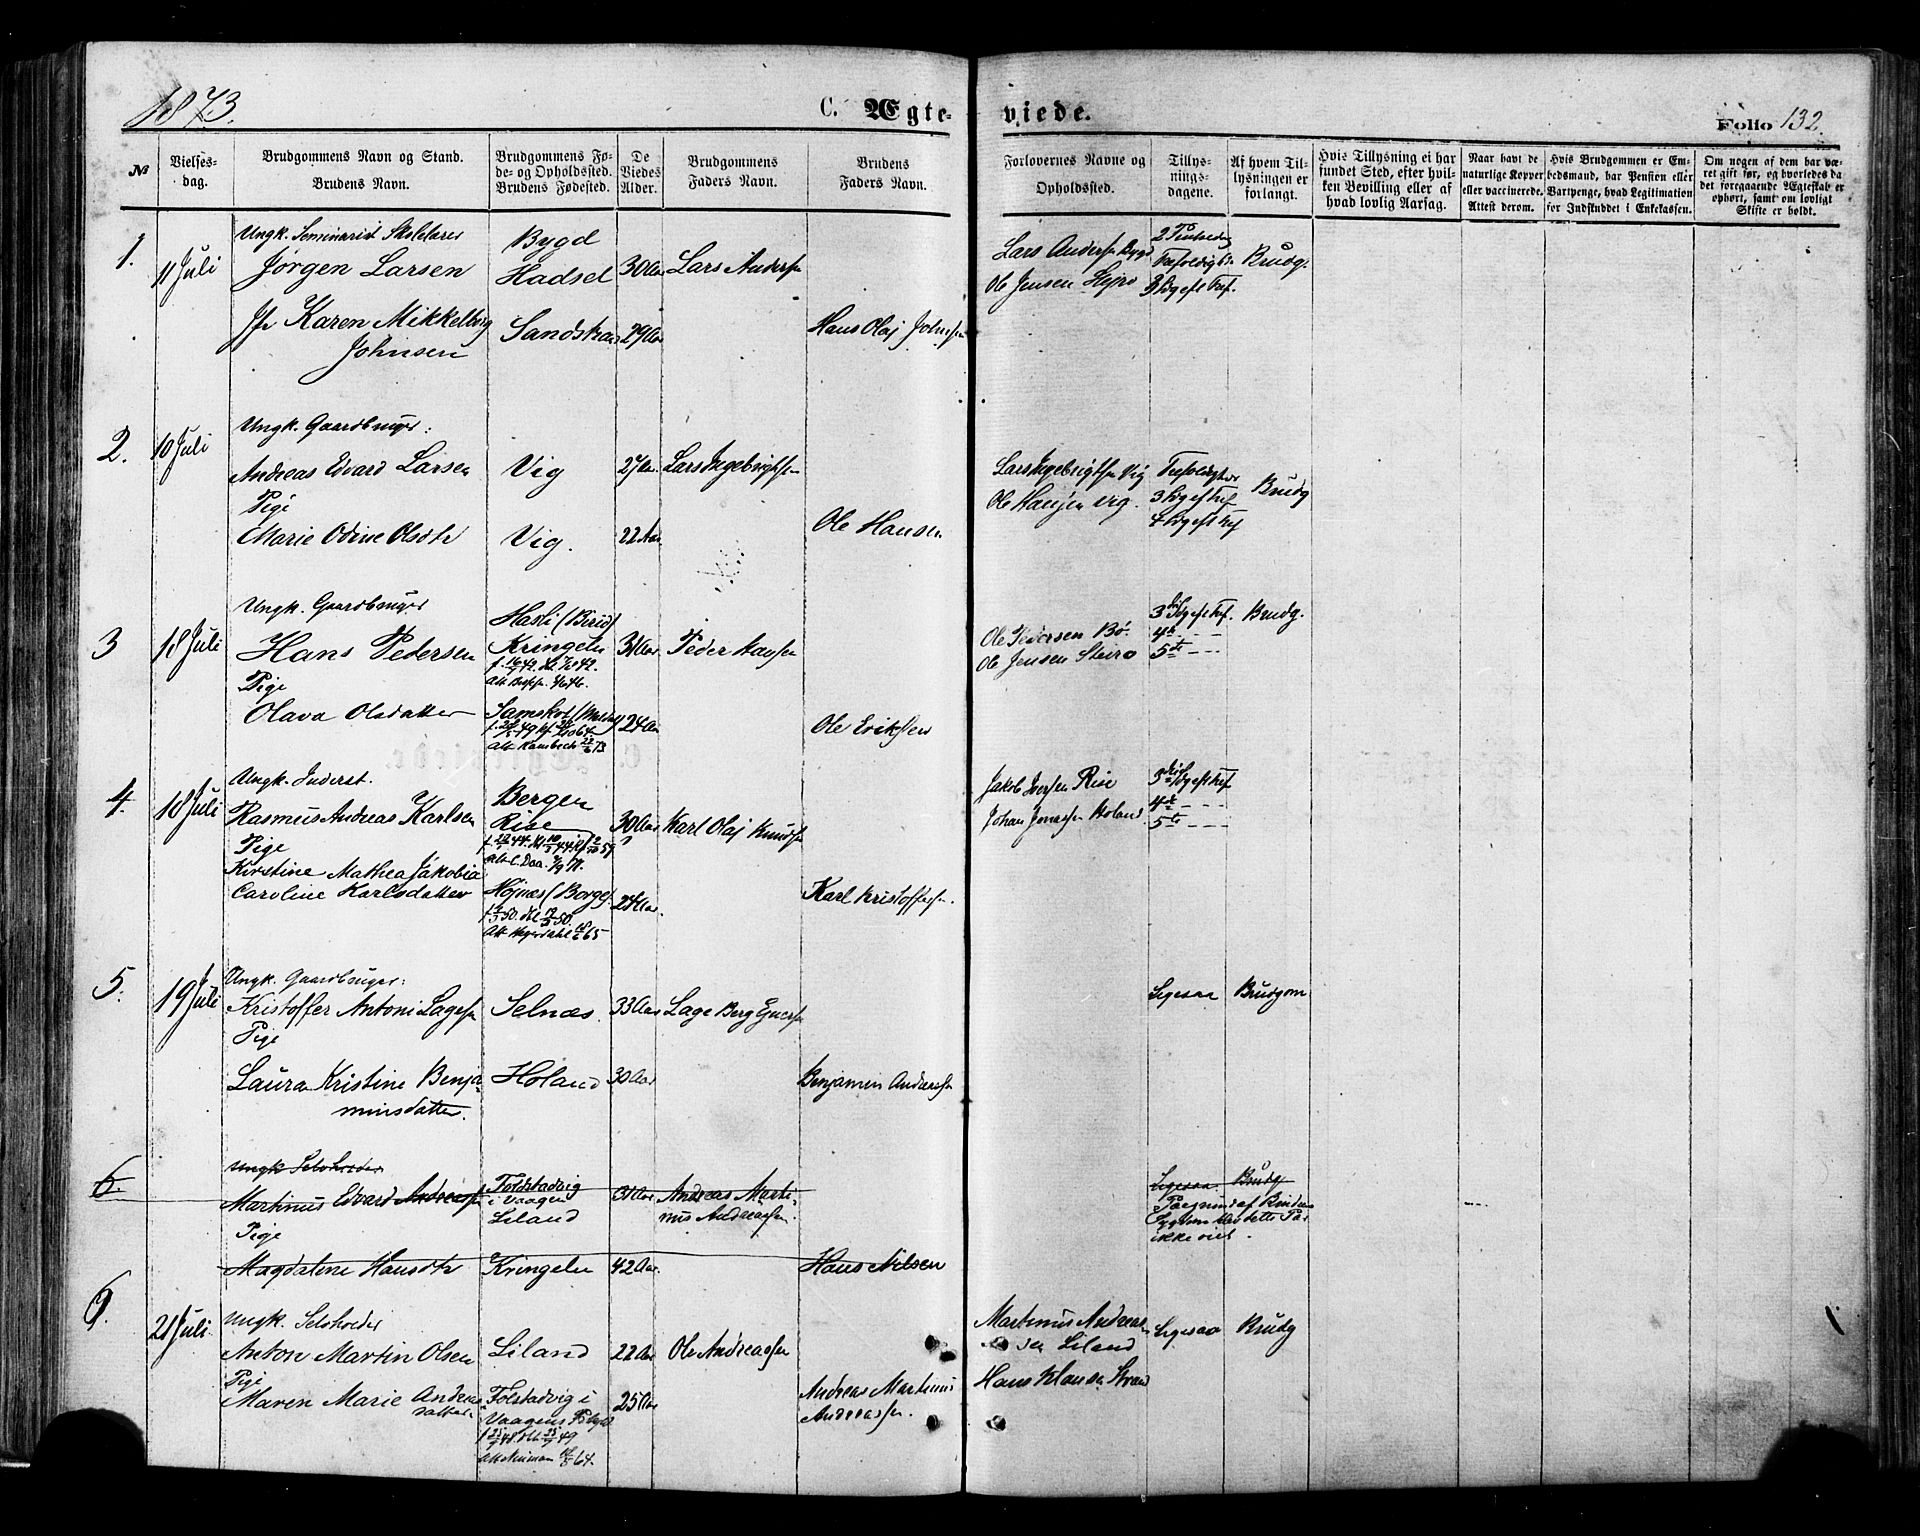 1873.
C. Ægte-
viede.
Folio 132.
№
Vielses-
dag.
Brudgommens Navn og Stand.
Brudens Navn.
Brudgommens Fø-
de- og Opholdssted.
Brudens Fødested.
De
Viedes
Alder.
Brudgommens
Faders Navn.
Brudens
Faders Navn.
Forlovernes Navne og
Opholdssted.
Tillys-
nings-
dagene.
Af hvem Til-
lysningen er
forlangt.
Hvis Tillysning ei har
fundet Sted, efter hvil-
ken Bevilling eller af
hvad lovlig Aarsag.
Naar havt de
naturlige Kopper
eller vaccinerede.
Attest derom.
Hvis Brudgommen er Em-
bedsmand, har Pension eller
Vartpenge, hvad Legitimation
for Indskuddet i Enkekassen.
Om nogen af dem har væ-
ret gift før, og hvorledes da
det foregaaende Ægteskab er
ophørt, samt om lovligt
Skifte er holdt.
1.
11 Juli
Ungk. Seminarist
Jørgen Larsen
Karen
Johnsen
Bygd
Hadsel
30 Aar
29 Aar
Lars Andersen
Hans Olaj Johnsen
Lars Andersen Bygd
Ole Jensen
Brudg.
2.
10 Juli
Ungk. Gaardbruger:
Andreas Edvard Larsen
Pige
Marie Odine Olsdtr
Vig
Vig.
27 Aar
22 Aar
Lars Ingebrigtsen
Ole Hansen
Lars Ingebrigtsen Vig
Ole Hansen Vig.
Brudg
3
18 Juli
Ungk. Gaardbruger
Hans Pedersen
Pige
Olava Olsdatter
Kringeln
24 Aar
Peder Hansen
Ole Eriksen
Ole Pedersen Bø.
Ole Jensen Steiro
Brudg.
4.
18 Juli
Ungk. Inderst.
Rasmus Andreas Karlsen
Pige
Kirstine Mathea Jakobia
Caroline Karlsdatter
Bergen
Rise
30 Aar
24 Aar
Karl Olaj Knudsen
Karl Kristoffersen.
Jakob Iversen Rise
Johan Jonassen Holand
5.
19 Juli
Ungk. Gaardbruger:
Kristoffer Antoni Lagesen
Pige
Laura Kristine Benja-
minsdatter.
Selnæs.
Holand
33 Aar
30 Aar
Lage Berg
Benjamin Andreassen
Ligesaa
Brudgom
6.
Ungk. Selvhoeder
Martinus Edvard Andreassen
Pige
Magdalene Hansdtr
Foldstadvig
i Vaagen
Liland
Kringeln
42 Aar.
Andreas Marti-
nus Andreassen.
Hans Nilsen
Ligesaa.
Brudg
Paagrund af Brudens
Sygdom blev dette Par
ikke viet.
6.
21 Juli.
Ungk. Selvhoeder
Anton Martin Olsen
Pige
Maren Marie Andreas-
datter.
Liland
Folstadvig i
Vaagens
22 Aar
25 Aar
Ole Andreassen
Andreas Martinus
Andreassen.
Martinus Andreas-
sen Liland
Hans Klausen Strand
Ligesaa
Brudg